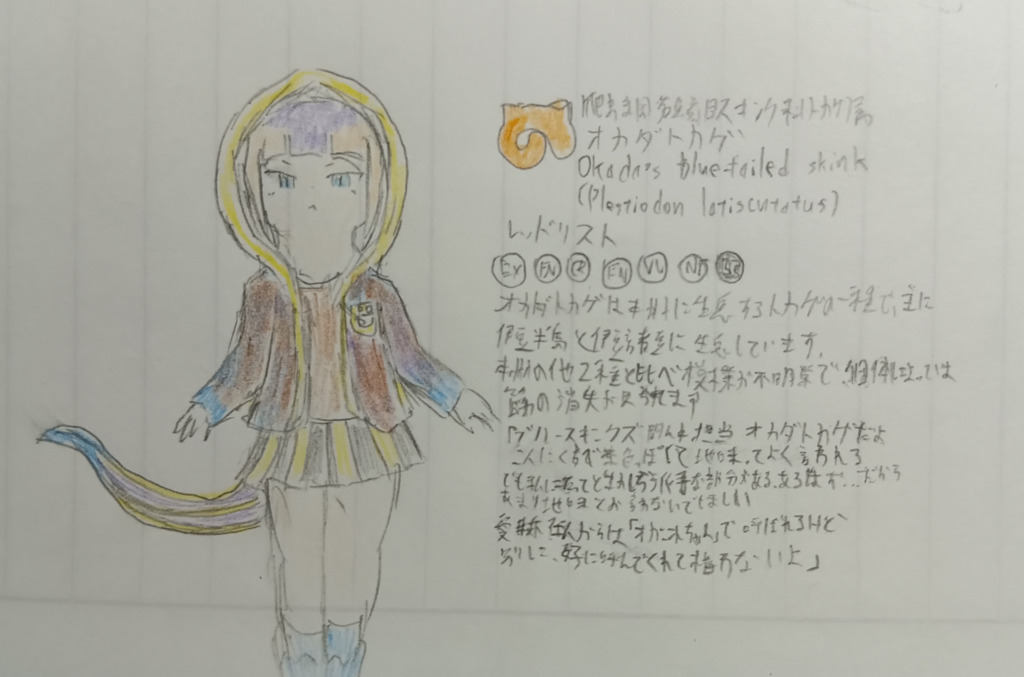 爬虫綱有鱗目スキンク科トカゲ属
オカダトカゲ
Okada's blue-tailed skink
(Plestiodon latiscutatus)
レッドリスト
EX EW CR EN VU NT LC
オカダトカゲは本州に生息するトカゲの一種で、主に
伊豆半島と伊豆諸島に生息しています。
本州の他2種と比べ模様が不明瞭で、個体によっては
筋の消失が見られます
「ブルースキンクズ 担当 オカダトカゲだよ
っぽくて地味ってよく言われる
でも私にだって 部分がある、あるはず…だから
あまり地味とか言わないでほしい
からは「オカちゃん」て呼ばれるけど、
別に、好きに呼んでくれて構わないよ」